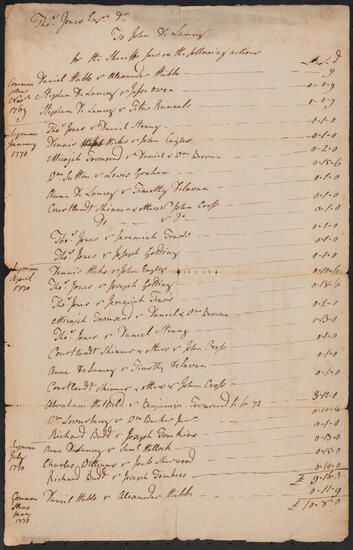 Thos. Jones Esqr. Dr.
To John De Lancey
for the Sheriffs fees on the following actions
£ s d
Common pleas 1769 Daniel Hubbs v Alexander Hubbs 9
Stephen De Lancey v Jesse Owen 0-0-9
Stephen De Lancey v Titus Runnels 0-0-9
Supream January 1770 Thos. Jones v Daniel Strang 0-1-0
Dennis Hicks v John Engles 0-1-0
Micajah Townsend v Daniel & Wm Brown 0-2-0
Wm Sutton v Lewis Graham
Anne De Lancey v Timothy Delavan 0-1-0
Courtlandt Skinner & others v John Cross 0-1-0
Do v Do 0-1-0
Thos. Jones v Jeremiah Travis 0-1-0
Thos. Jones v Joseph Golding 0-1-0
Supream April 1770 Dennis Hicks v John Engles
Thos. Jones v Joseph Golding
Thos. Jones v Jeremiah Travis 0-1-0
Micajah Townsend v Daniel & Wm Brown
Thos. Jones v Daniel Strang 0-1-0
Courtlandt Skinner & others v John Cross 0-1-0
Anne Delancey v Timothy Delavan 0-1-0
Courtlandt Skinner & others v John Cross 0-1-0
Abraham Hatfield v Benjamin Townsend
Wm Lounsbery v Wm Barker Junr
Richard Budd v Joseph Tomkins 0-1-0
Supream July 1770 Ann DeLancey v Saml. Hallock
Charles Williams v Joab Sherwood
Richard Budd v Joseph Tomkins
£ 9-16-3
Common Pleas May 1770 Daniel Hubbs v Alexander Hubbs 0-11-9
£ 10-8-0